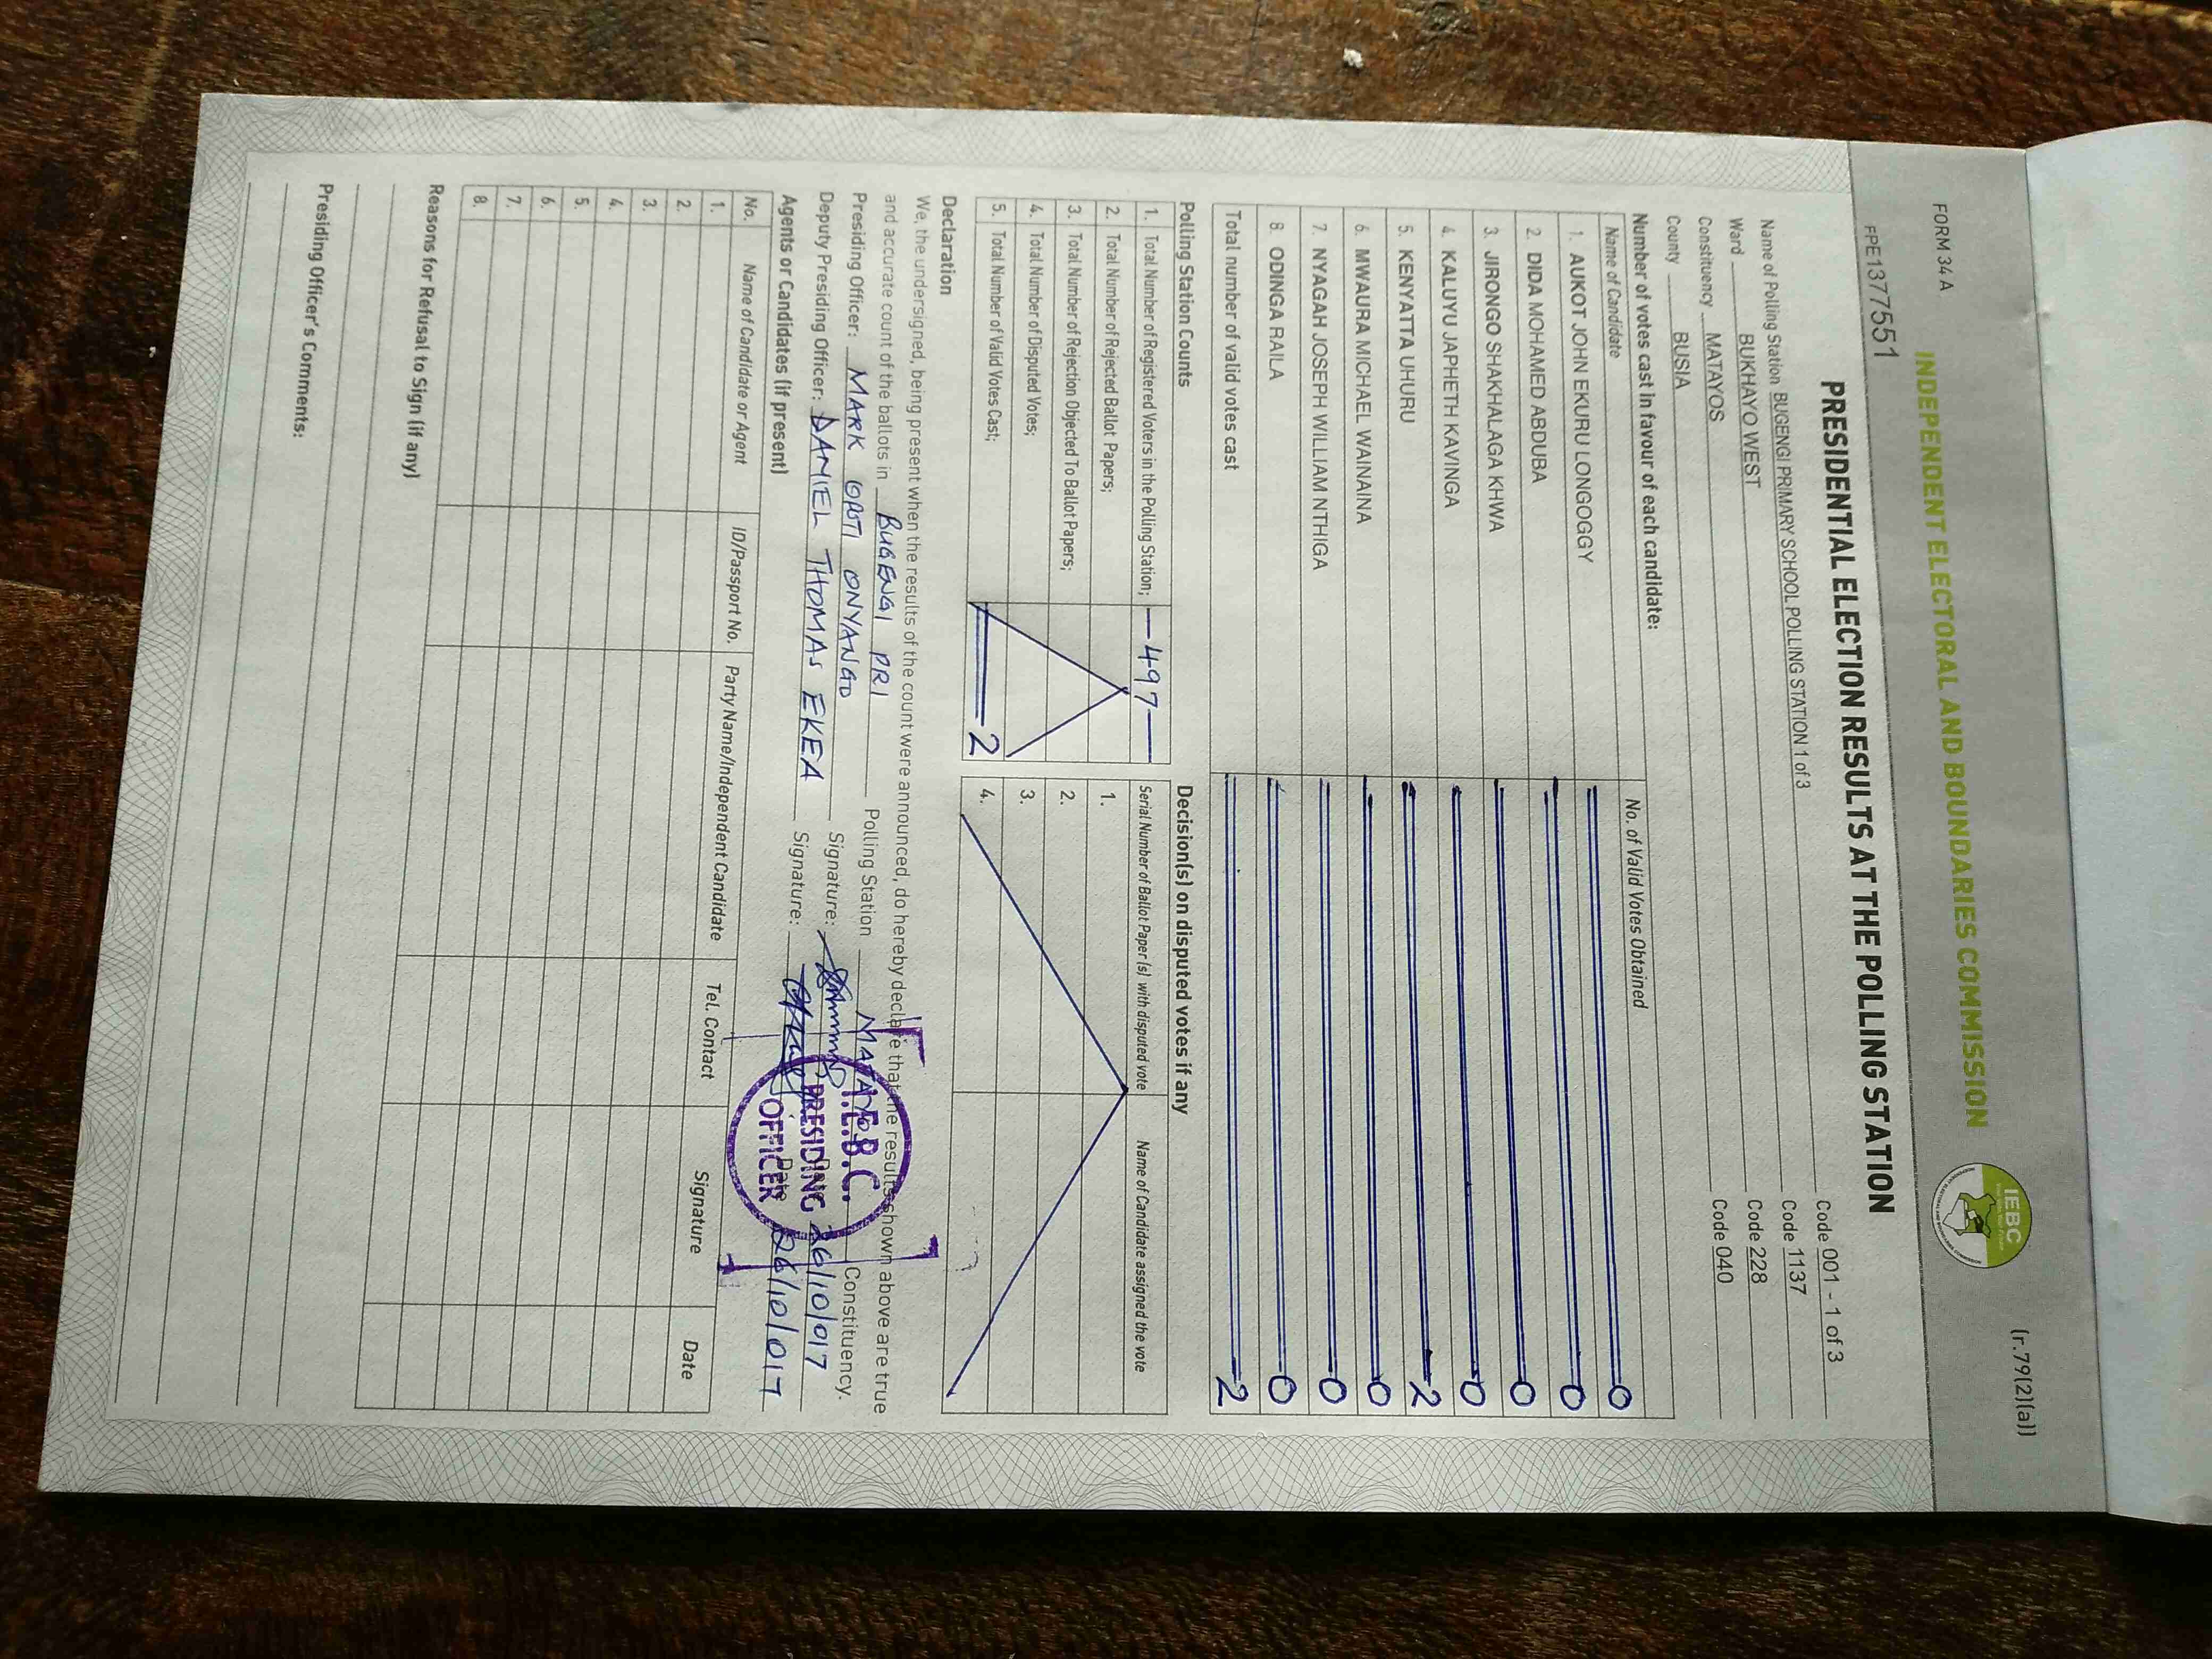 FORM 34 A
(r.79(2)(a))
INDEPENDENT ELECTORAL AND BOUNDARIES COMMISSION
IEBC
FPE1377551
PRESIDENTIAL ELECTION RESULTS AT THE POLLING STATION
Name of Polling Station BUGENGI PRIMARY SCHOOL POLLING STATION 1 of 3 Code 001 - 1 of 3
Ward BUKHAYO WEST Code 1137
Constituency MATAYOS Code 228
County BUSIA Code 040
Number of votes cast in favour of each candidate:
Name of Candidate No. of Valid Votes Obtained
1. AUKOT JOHN EKURU LONGOGGY 0
2. DIDA MOHAMED ABDUBA 0
3. JIRONGO SHAKHALAGA KHWA 0
4. KALUYU JAPHETH KAVINGA 0
5. KENYATTA UHURU 2
6. MWAURA MICHAEL WAINAINA 0
7. NYAGAH JOSEPH WILLIAM NTHIGA 0
8. ODINGA RAILA 0
Total number of valid votes cast 2
Polling Station Counts
1. Total Number of Registered Voters in the Polling Station; 497
2. Total Number of Rejected Ballot Papers;
3. Total Number of Rejection Objected To Ballot Papers;
4. Total Number of Disputed Votes;
5. Total Number of Valid Votes Cast; 2
Decision(s) on disputed votes if any
Serial Number of Ballot Paper (s) with disputed vote Name of Candidate assigned the vote
1.
2.
3.
4.
Declaration
We, the undersigned, being present when the results of the count were announced, do hereby declare that the results shown above are true
and accurate count of the ballots in BUGENGI PRI Polling Station MATAYOS Constituency.
Presiding Officer: MARK OPOTI ONYANGO Signature: Date 26/10/017
Deputy Presiding Officer: DANIEL THOMAS EKEA Signature: Date 26/10/017
I.E.B.C.
PRESIDING
OFFICER
Agents or Candidates (if present)
No. Name of Candidate or Agent ID/Passport No. Party Name/Independent Candidate Tel. Contact Signature Date
1.
2.
3.
4.
5.
6.
7.
8.
Reasons for Refusal to Sign (if any)
Presiding Officer's Comments: